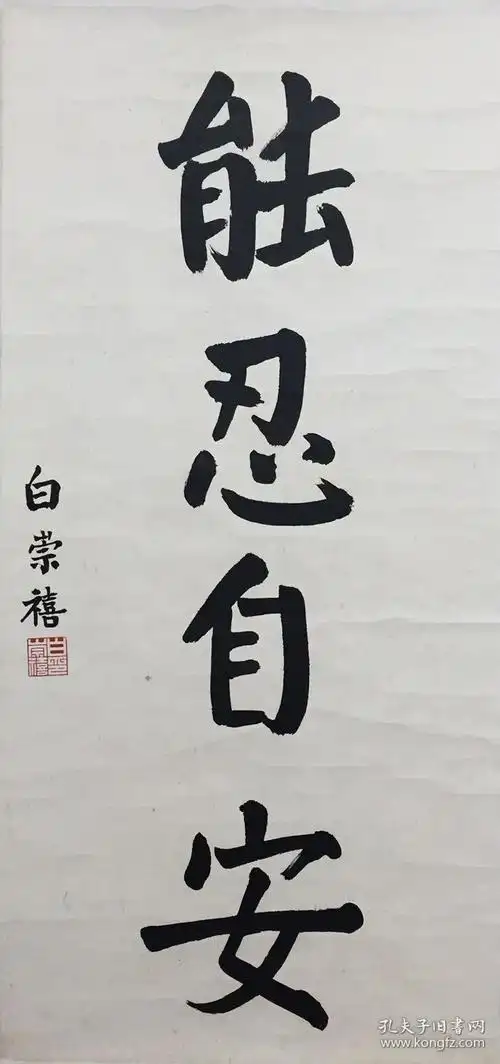 能忍自安
白崇禧
孔夫子旧书网
www.kongfz.com